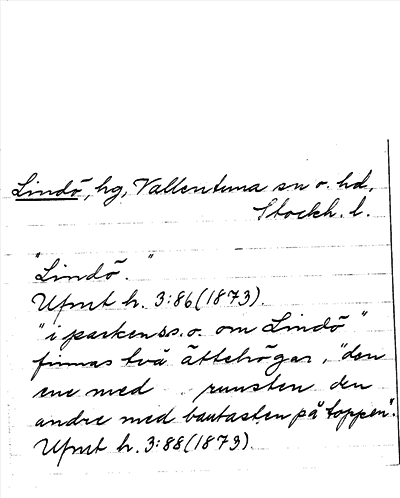 Lindö, hg, Vallentuna sn o. hd,
Stockh. l.
"Lindö."
Ufmt h. 3:86(1873).
"i parken s.s.o. om Lindö"
finnas två ättehögar, "den
ene med runsten den
andre med bautasten på toppen".
Ufmt h. 3:88(1873).